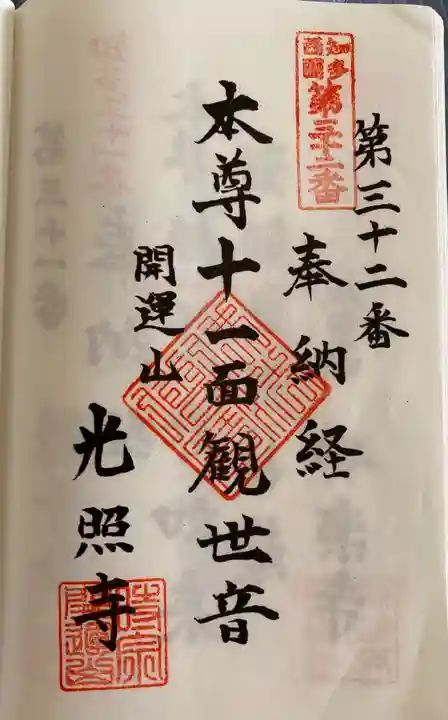 第三十二番
知多
西国
第三十二番
奉納経
本尊十一面観世音
開運山
光照寺